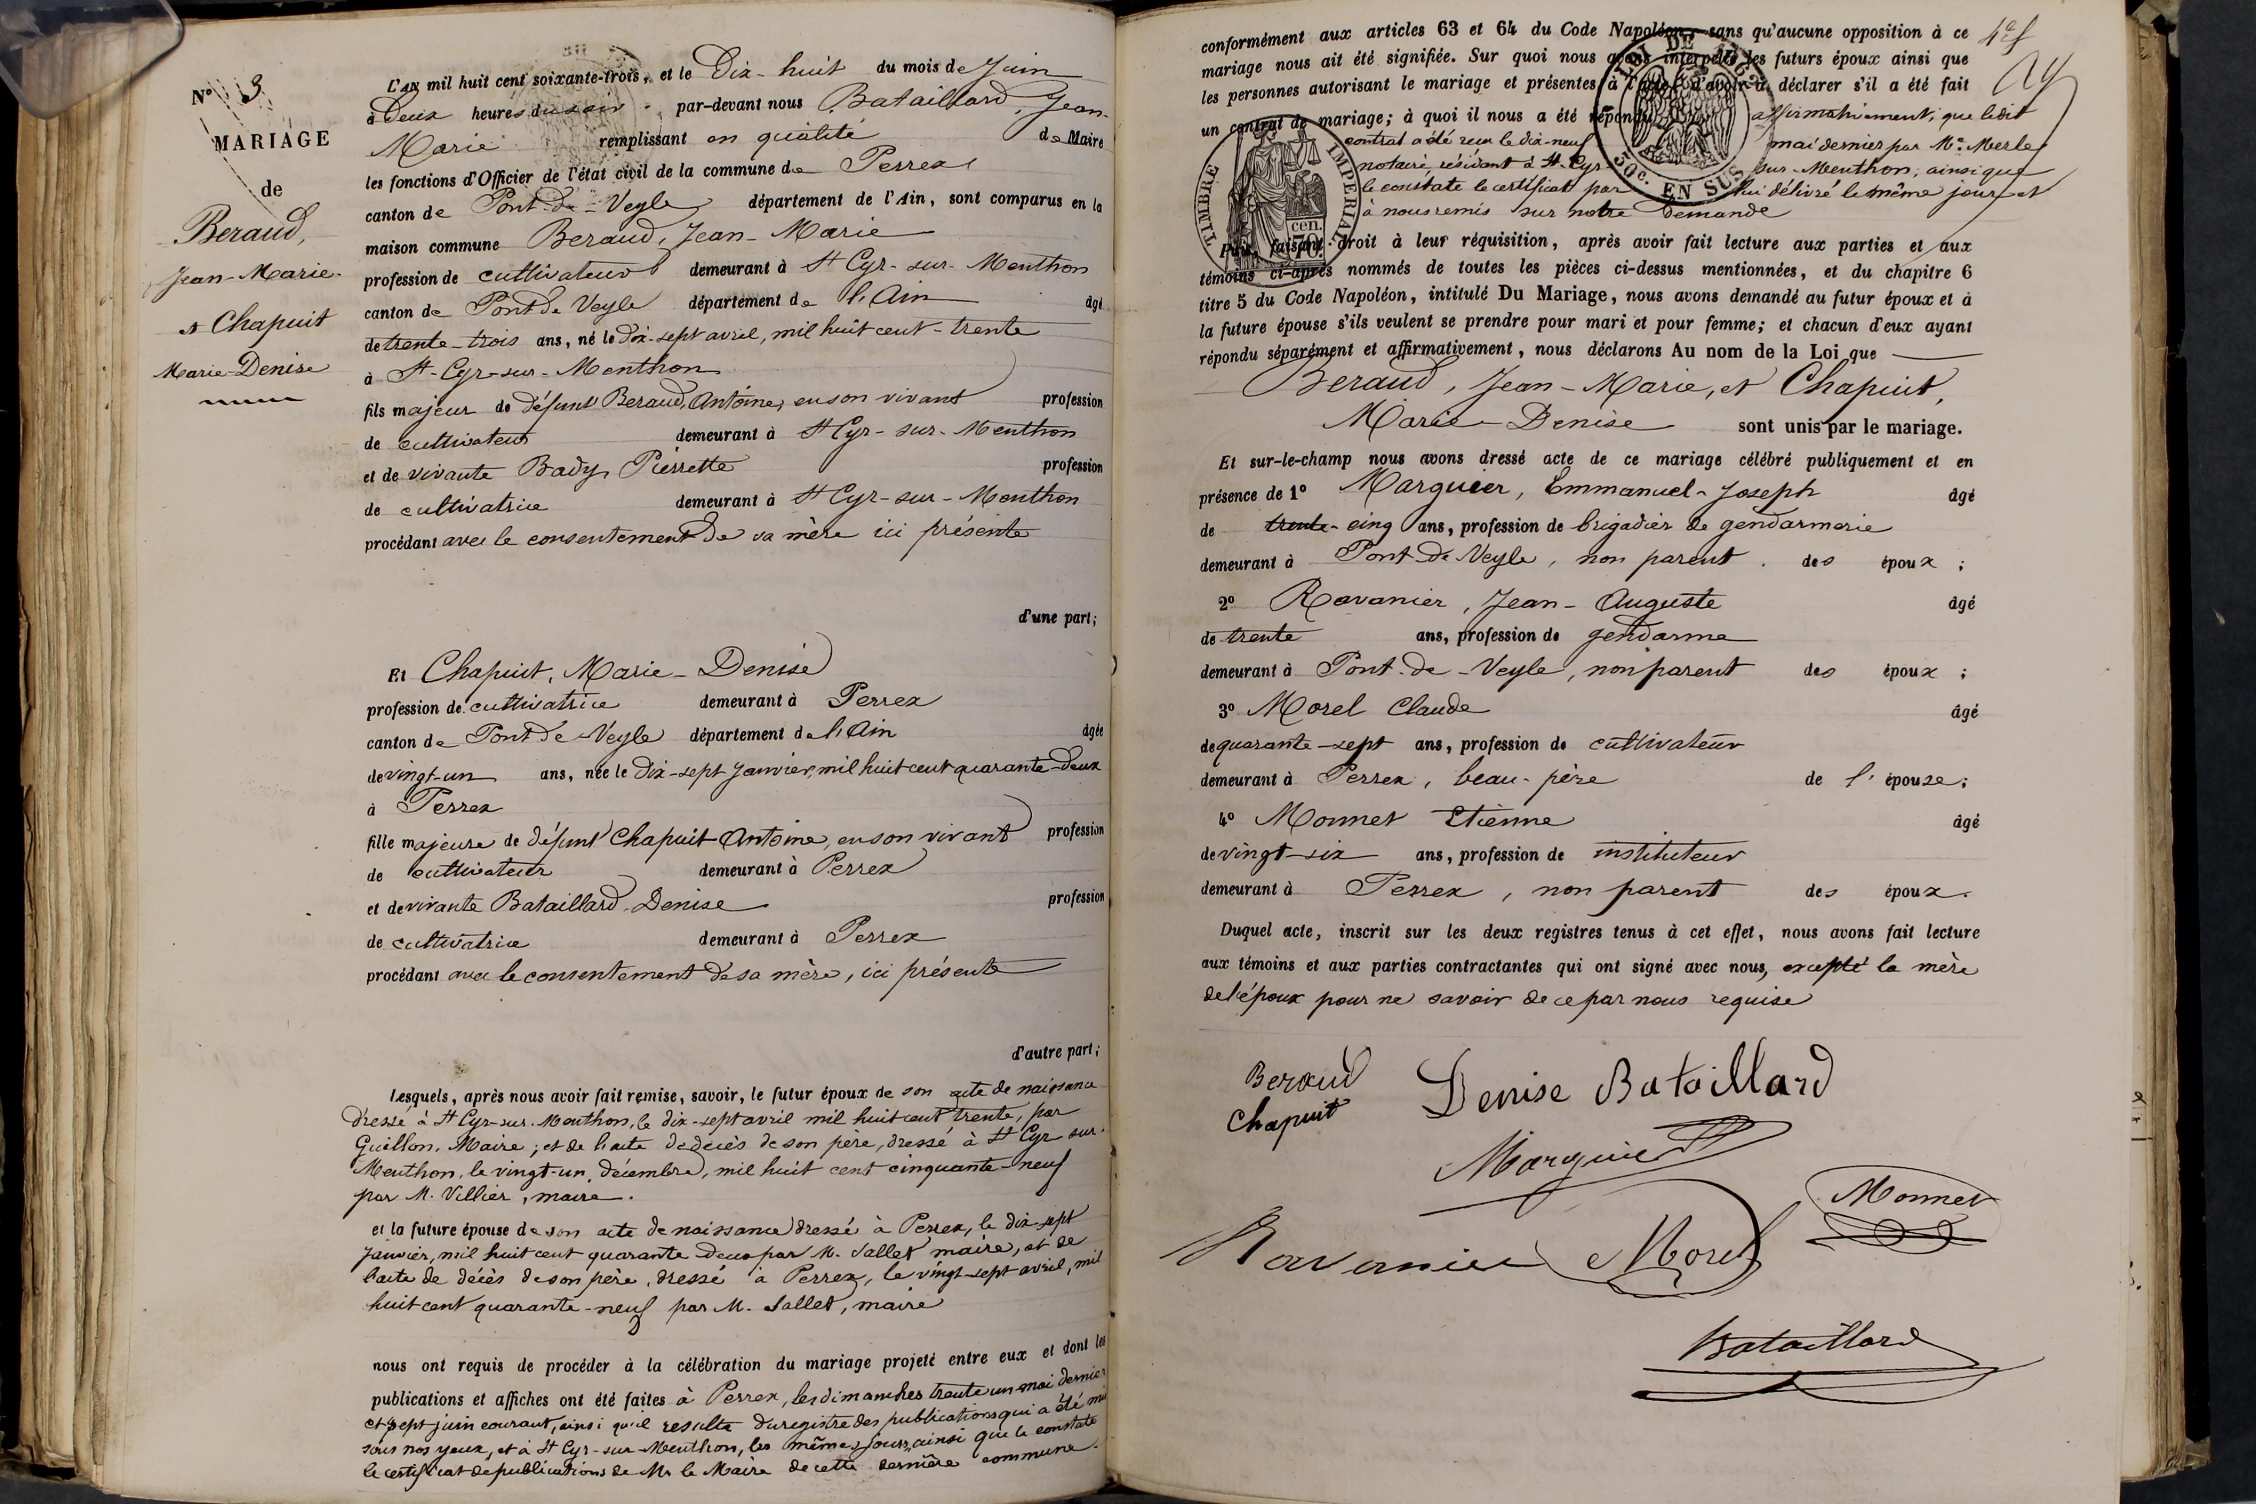 N° 3
MARIAGE
de
Beraud,
Jean-Marie
et Chapuit
Marie-Denise
L'an mil huit cent soixante-trois, et le Dix-huit du mois de Juin
à Deux heures du soir par-devant nous Bataillard, Jean-
Marie remplissant en qualité de Maire
les fonctions d'Officier de l'état civil de la commune de Perrex
canton de Pont-de-Veyle département de l'Ain, sont comparus en la
maison commune Beraud, Jean-Marie
profession de cultivateur demeurant à St Cyr-sur-Menthon
canton de Pont de Veyle département de l'Ain âgé
de trente-trois ans, né le dix-sept avril, mil huit cent-trente
à St-Cyr-sur-Menthon
fils majeur de défunt Beraud, Antoine, en son vivant profession
de cultivateur demeurant à St Cyr-sur-Menthon
et de vivante Bady, Pierrette profession
de cultivatrice demeurant à St Cyr-sur-Menthon
procédant avec le consentement de sa mère ici présente
d'une part;
Et Chapuit, Marie-Denise
profession de cultivatrice demeurant à Perrex
canton de Pont de Veyle département de l'Ain âgée
de vingt-un ans, née le dix-sept Janvier, mil huit cent quarante-deux
à Perrex
fille majeure de défunt Chapuit Antoine, en son vivant profession
de cultivateur demeurant à Perrex
et de vivante Bataillard Denise profession
de cultivatrice demeurant à Perrex
procédant avec le consentement de sa mère, ici présente
d'autre part;
Lesquels, après nous avoir fait remise, savoir, le futur époux de son acte de naissance
dressé à St Cyr-sur-Menthon, le dix-sept avril mil huit cent trente, par
Guillon, Maire; et de l'acte de décès de son père, dressé à St Cyr sur-
Menthon, le vingt-un décembre, mil huit cent cinquante-neuf
par M. Villier, maire.
et la future épouse de son acte de naissance dressé à Perrex, le dix-sept
Janvier, mil huit cent quarante deux par M. Sallet maire, et de
l'acte de décès de son père, dressé à Perrex, le vingt-sept avril, mil
huit cent quarante-neuf par M. Sallet, maire
nous ont requis de procéder à la célébration du mariage projeté entre eux et dont les
publications et affiches ont été faites à Perrex, les dimanches trente un mai dernier
et sept juin courant, ainsi qu'il resulte du registre des publications qui a été mis
sous nos yeux, et à St Cyr-sur-Menthon, les mêmes jours, ainsi que le constate
le certificat de publications de Mr le Maire de cette dernière commune.
conformément aux articles 63 et 64 du Code Napoléon, sans qu'aucune opposition à ce
mariage nous ait été signifiée. Sur quoi nous avons interpellé les futurs époux ainsi que
les personnes autorisant le mariage et présentes à l'acte, d'avoir à déclarer s'il a été fait
un contrat de mariage; à quoi il nous a été répondu affirmativement; que ledit
contrat a été reçu le dix-neuf mai dernier par Me Merle
notaire, résidant à St-Cyr-sur-Menthon, ainsi que
le constate le certificat par lui délivré le même jour et
à nous remis sur notre demande
LOI DE 1862
50c. EN SUS
TIMBRE IMPERIAL
cen.
70.
Puis, faisant droit à leur réquisition, après avoir fait lecture aux parties et aux
témoins ci-après nommés de toutes les pièces ci-dessus mentionnées, et du chapitre 6
titre 5 du Code Napoléon, intitulé Du Mariage, nous avons demandé au futur époux et à
la future épouse s'ils veulent se prendre pour mari et pour femme; et chacun d'eux ayant
répondu séparément et affirmativement, nous déclarons Au nom de la Loi que
Beraud, Jean-Marie, et Chapuit,
Marie-Denise sont unis par le mariage.
Et sur-le-champ nous avons dressé acte de ce mariage célébré publiquement et en
présence de 1° Marguier, Emmanuel-Joseph âgé
de trente-cinq ans, profession de brigadier de gendarmerie
demeurant à Pont-de-Veyle, non parent des époux;
2° Ravanier, Jean-Auguste âgé
de trente ans, profession de gendarme
demeurant à Pont-de-Veyle, non parent des époux;
3° Morel Claude âgé
de quarante-sept ans, profession de cultivateur
demeurant à Perrex, beau-père de l'épouse;
4° Monnet Etienne âgé
de vingt-six ans, profession de instituteur
demeurant à Perrex, non parent des époux.
Duquel acte, inscrit sur les deux registres tenus à cet effet, nous avons fait lecture
aux témoins et aux parties contractantes qui ont signé avec nous, excepté la mère
de l'époux pour ne savoir de ce par nous requise
Beraud Denise Bataillard
Chapuit
Marguier
Monnet
Ravanier Morel
Bataillard